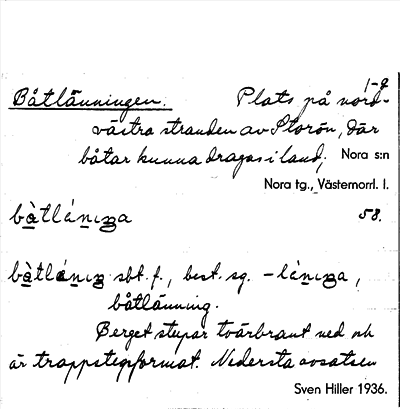 1-2
Båtlänningen. Plats på nord-
västra stranden av Storön, där
båtar kunna dragas i land, Nora s:n
Nora tg., Västernorrl. l.
58.
båtlä́niŋa
båtlä́niŋ sbt. f., best. sg. -lä́niŋa,
båtlänning.
Berget stupar tvärbrant ned och
är trappstegsformat. Nedersta avsatsen
Sven Hiller 1936.